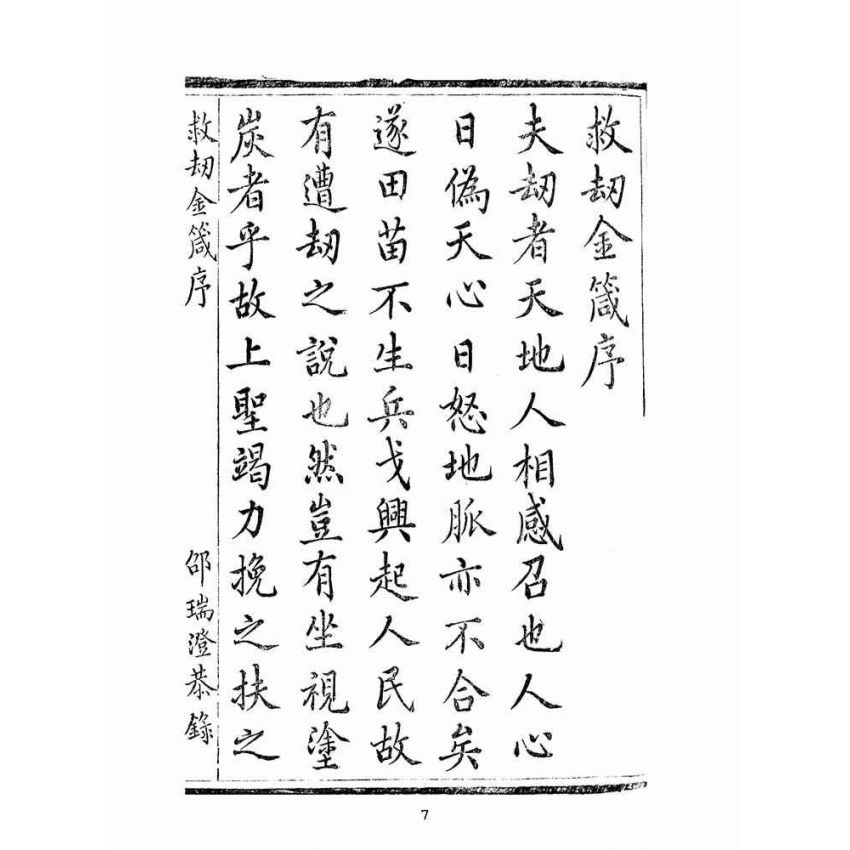 救劫金箴序
夫劫者天地人相感召也人心
日偽天心日怒地脈亦不合矣
遂田苗不生兵戈興起人民故
有遭劫之說也然豈有坐視塗
炭者乎故上聖竭力挽之扶之
救劫金箴序
邵瑞澄恭錄
7